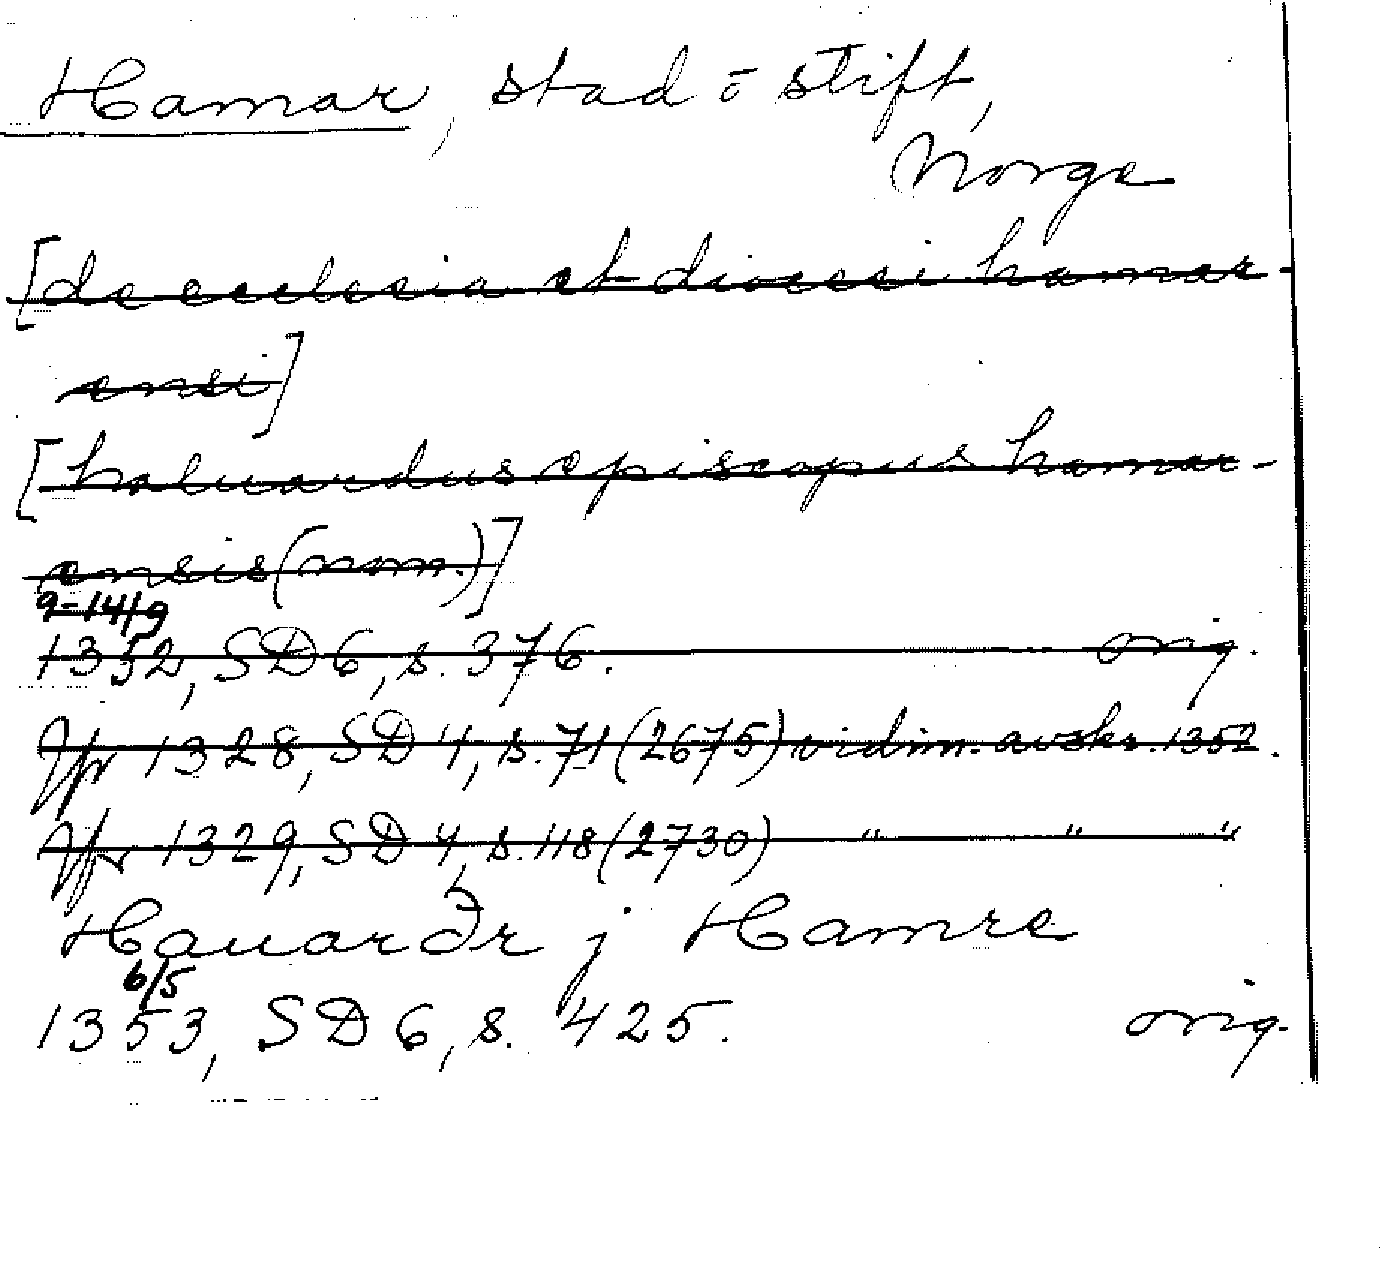 Hamar, stad o stift,
Norge
[de ecclesia et diocesi hamar-
ensi]
[haluardus episcopus hamar-
ensis (nom.)]
9-14/9
1352, SD 6, s. 376. orig.
Jfr 1328, SD 4, s. 71 (2675) vidim. avskr. 1352.
Jfr 1329, SD 4, s. 118 (2730) " " "
Hauarðr j Hamre
6/5
1353, SD 6, s. 425. orig.